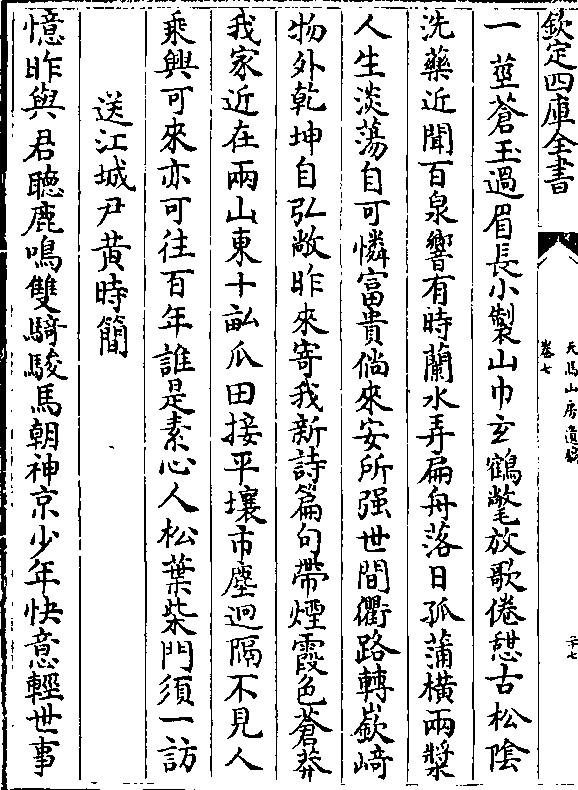 欽定四庫全書
天馬山房遺稿
卷七
二十七
一莖蒼玉過眉長小製山巾玄鶴氅放歌倦憇古松隂
洗藥近聞百泉響有時蘭水弄扁舟落日孤蒲橫兩漿
人生淡蕩自可憐富貴倘來安所强世間衢路轉嶔崎
物外乾坤自弘敞昨來寄我新詩篇句帶煙霞色蒼莽
我家近在兩山東十畝瓜田接平壤市塵迥隔不見人
乘興可來亦可往百年誰是素心人松葉柴門須一訪
送江城尹黄時簡
憶昨與君聴鹿鳴雙騎駿馬朝神京少年快意輕世事